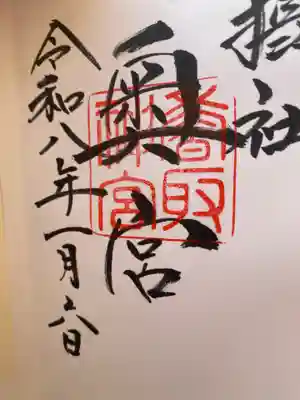 摂社
奥宮
香取神宮
令和八年一月六日